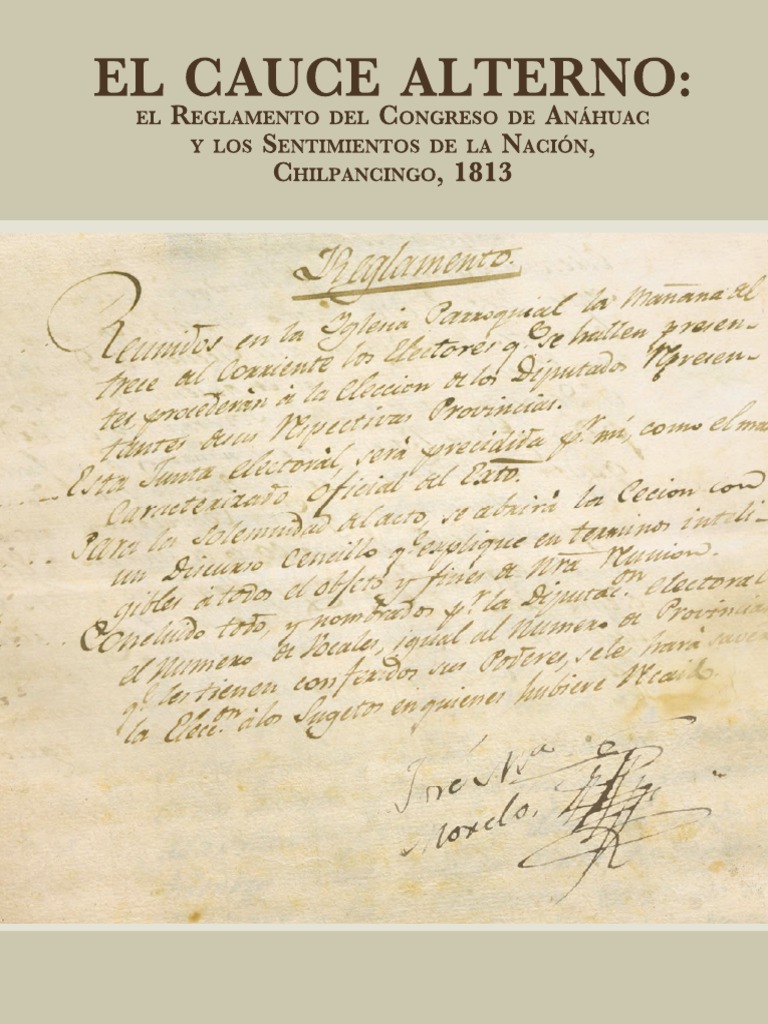 EL CAUCE ALTERNO:
EL REGLAMENTO DEL CONGRESO DE ANÁHUAC
Y LOS SENTIMIENTOS DE LA NACIÓN,
CHILPANCINGO, 1813
Reglamento.
Reunidos en la Iglesia Parroquial la Mañana del
trece del Corriente los Electores q.e se hallen presen-
tes procederán à la Eleccion de los Diputados Represen-
tantes de sus Respectivas Provincias.
Esta Junta Electoral, será precidida p.r mí, como el mas
Caracterizado Oficial del Exto.
Para la Solemnidad del acto, se abrirá la Cecion con
un Discurso Cencillo q.e explique en terminos inteli-
gibles à todos el objeto y fines de Nrã Reunion.
Concluido todo, y nombrados p.r la Diputac.on Electoral
el Numero de Vocales, igual al Numero de Provincias
q.e les tienen conferidos sus Poderes, se le hará saver
la Elecc.on à los Sugetos en quienes hubiere
José M.a
Morelos